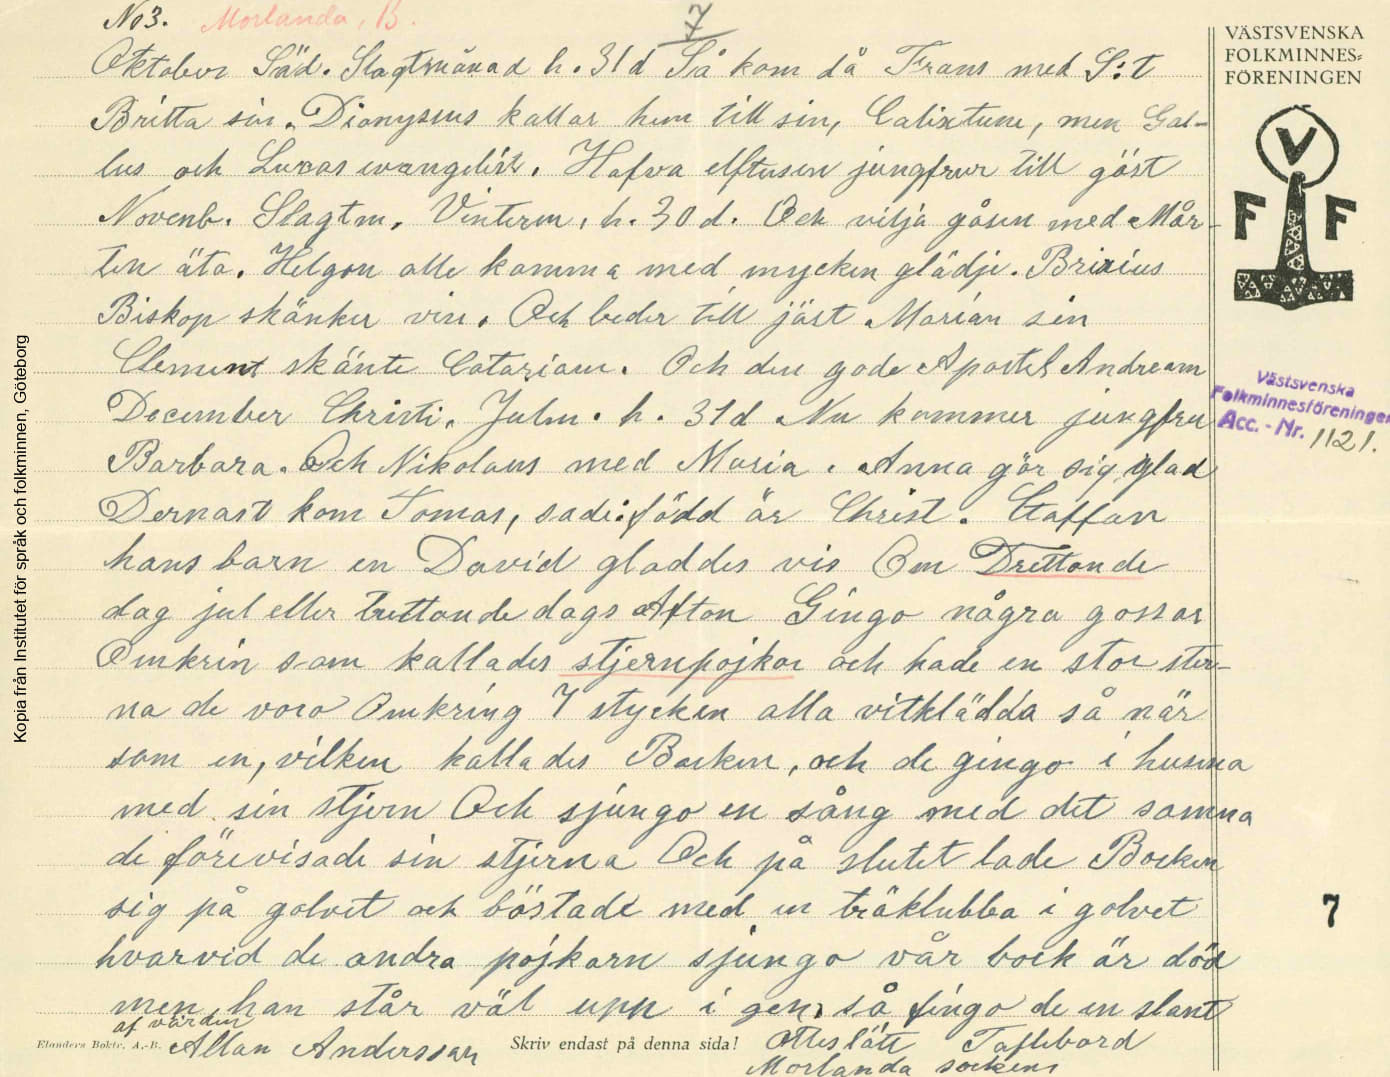 No 3. Morlanda, B. 7
Oktober Säd. Slagtmånad h. 31 d Så kom då Frans med S:t
Britta sin. Dionysius kallar hem till sin, Calixtum, men Gal-
lus och Lucas evangelist. Hafva elftusen jungfrur till gäst
Novenb. Slagtm. Vinterm. h. 30 d. Och vilja gåsen med Mår-
ten äta. Helgon alle komma med mycken glädje. Brixius
Biskop skänker vin. Och beder till jäst Marian sin
Clement skänte Catariam. Och den gode Apostel Andream
December Christi. Julm. h. 31 d Nu kommer jungfru
Barbara. Och Nikolaus med Maria. Anna gör sig glad
Dernast kom Tomas, sade: född är Christ. Staffan
hans barn en David gladdes vis Om Trettonde
dag jul eller trettonde dags Afton Gingo några gossar
Omkrin som kallades stjernpojkar och hade en stor stier-
na de voro Omkring 7 stycken alla vitklädda så när
som en, vilken kallades Bocken, och de gingo i husena
med sin stjern Och sjungo en sång med det samma
de förevisade sin stjerna Och på slutet lade Bocken
sig på golvet och böstade med en träklubba i golvet
hvarvid de andra pojkarn sjungo vår bock är död
men han står väl upp i gen, så fingo de en slant
af värden
Allan Andersson
Ottesläтt Taflebord
Morlanda sockens
Elanders Boktr. A.-B.
Skriv endast på denna sida!
VÄSTSVENSKA
FOLKMINNES-
FÖRENINGEN
V
F F
Västsvenska
Folkminnesföreningen
Acc. - Nr. 1121.
7
Kopia från Institutet för språk och folkminnen, Göteborg